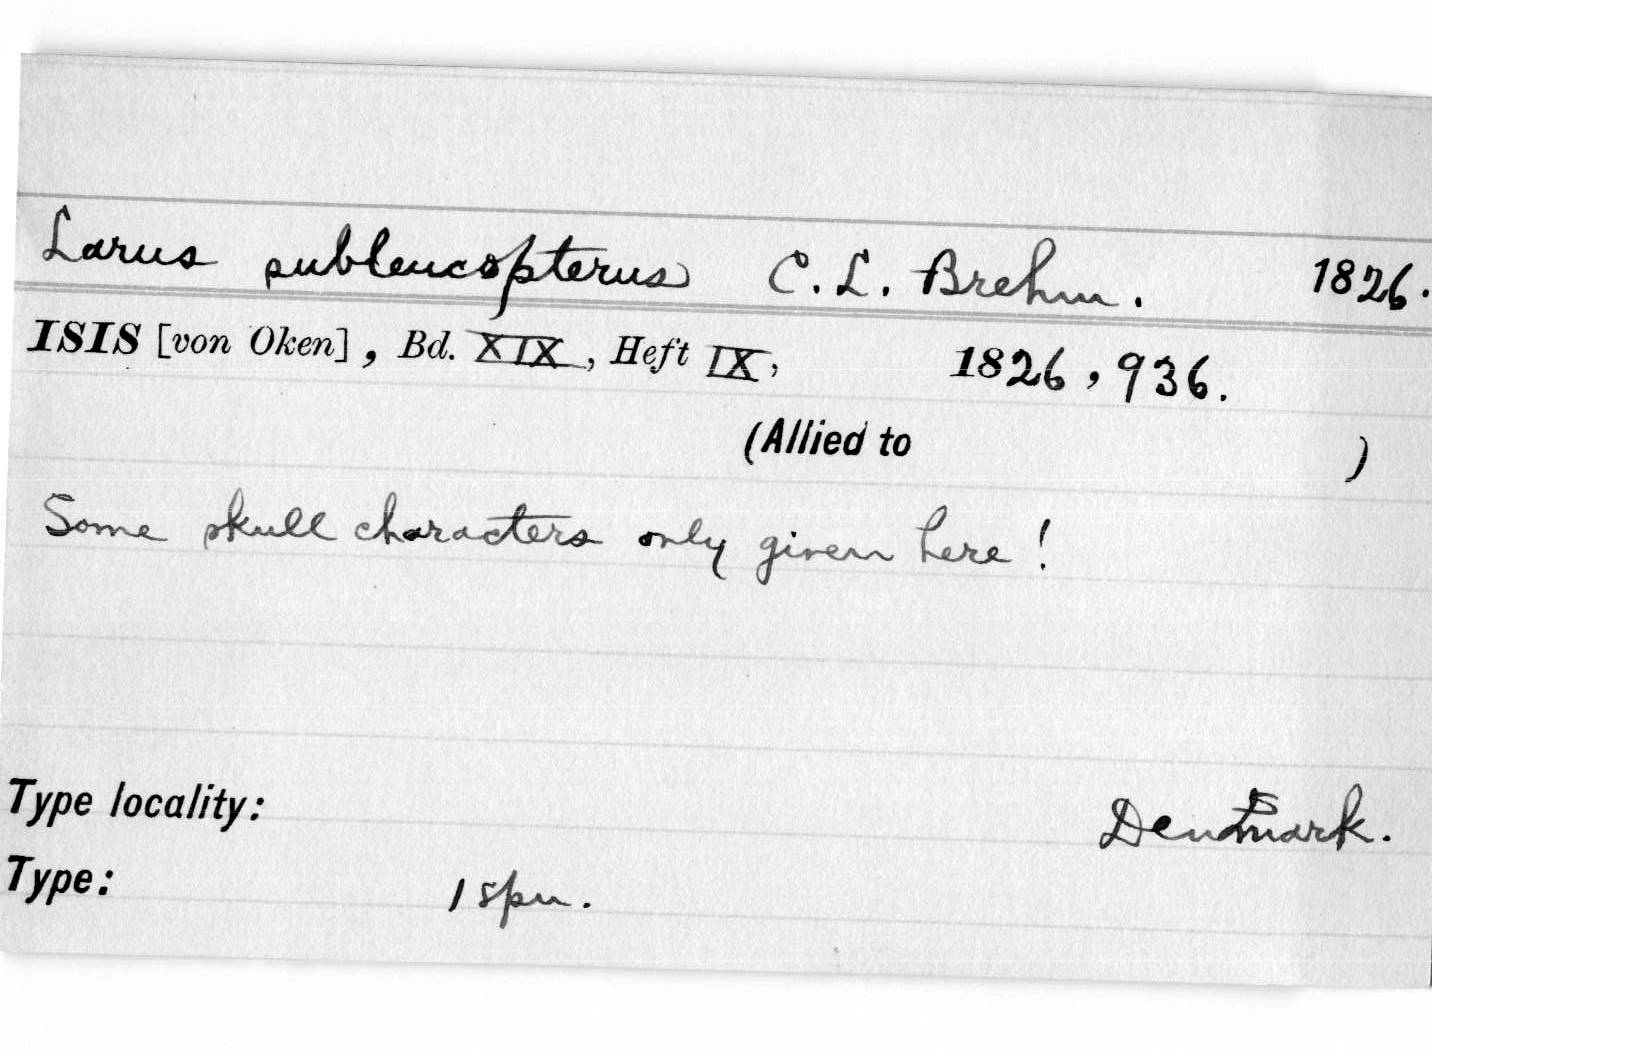 Larus subleucopterus C. L. Brehm. 1826.
ISIS [von Oken], Bd. XIX, Heft IX, 1826, 936.
(Allied to )
Some skull characters only given here!
Type locality: Denmark.
Type: 1 spn.